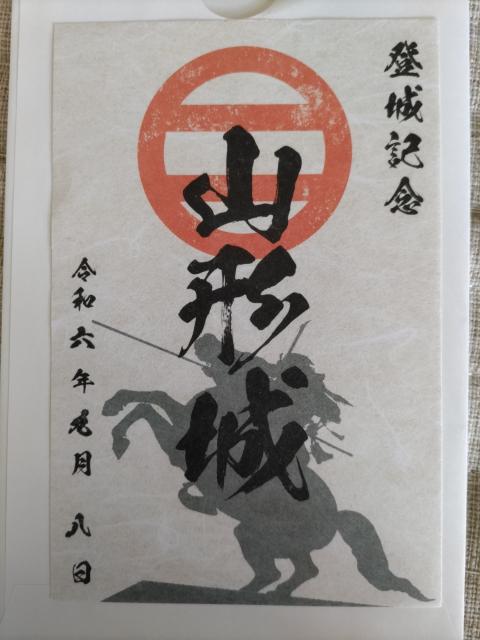 登城記念
山形城
令和六年 月 八日